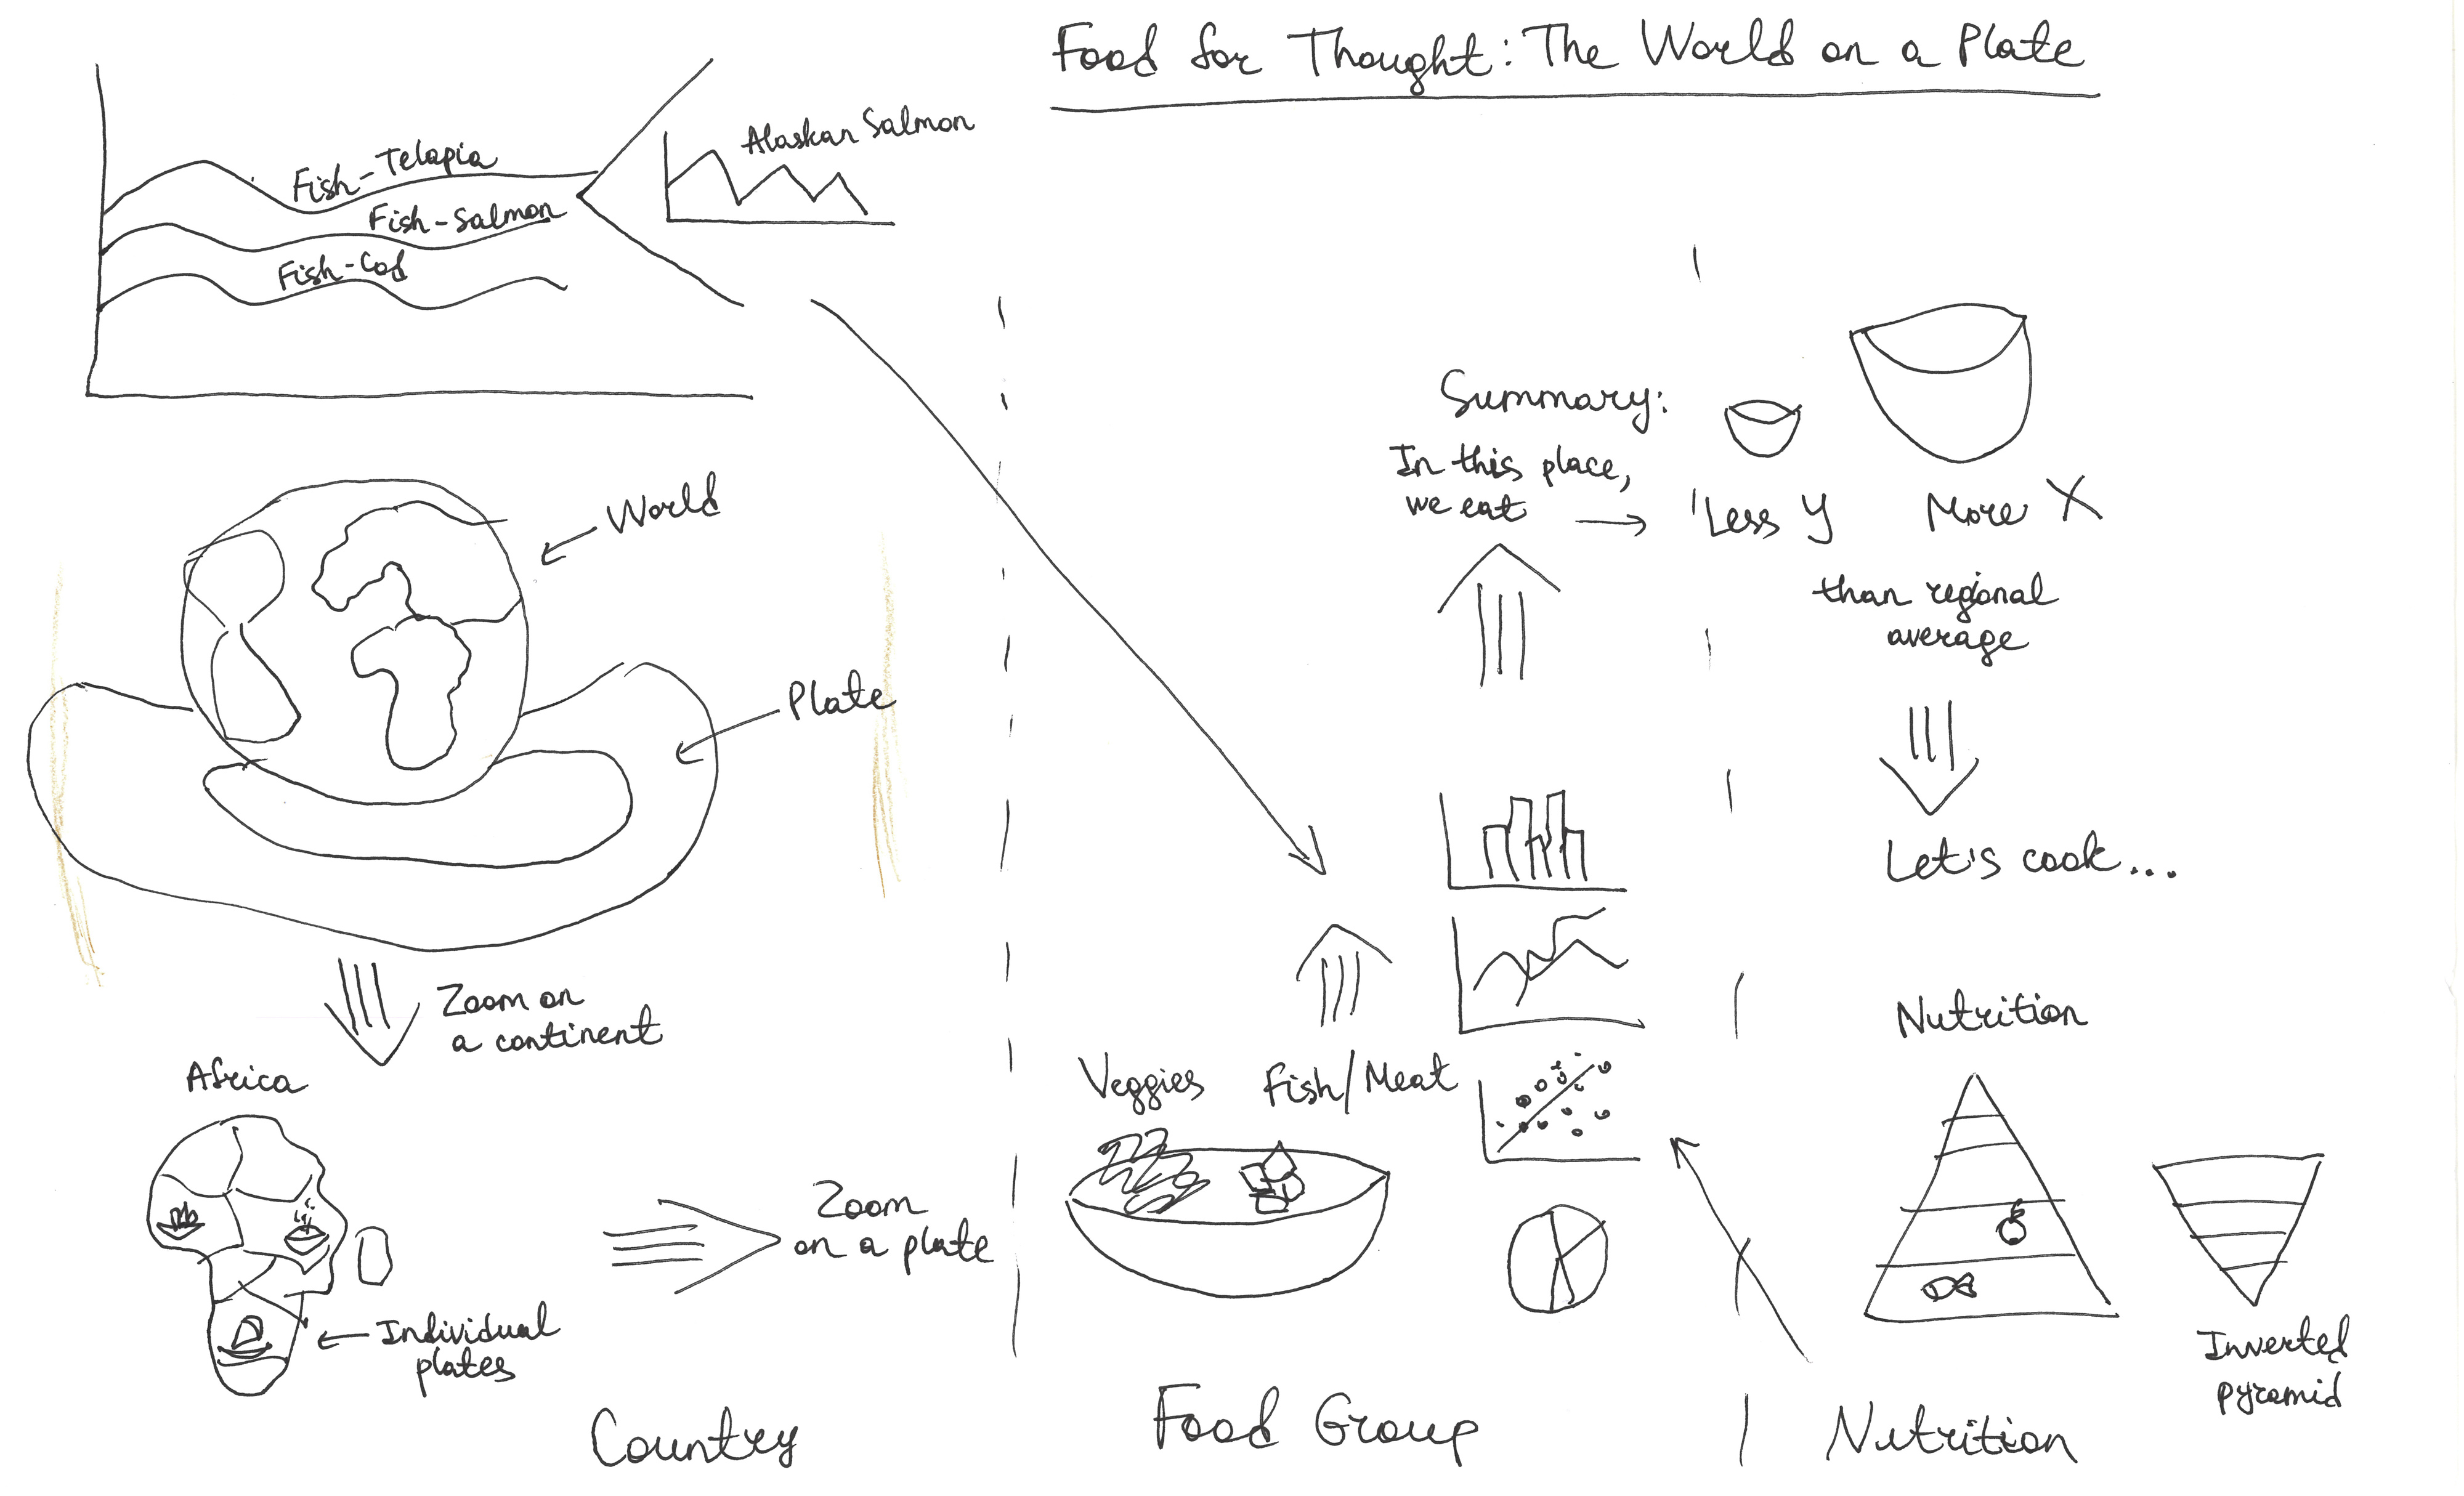 Food for Thought: The World on a Plate
Fish-Telapia
Fish-Salmon
Fish-Cod
Alaskan Salmon
World
Plate
Zoom on
a continent
Africa
Individual
plates
Zoom
on a plate
Country
Veggies
Fish/Meat
Food Group
Summary:
In this place,
we eat
Less Y
More X
than regional
average
Let's cook...
Nutrition
Inverted
pyramid
Nutrition